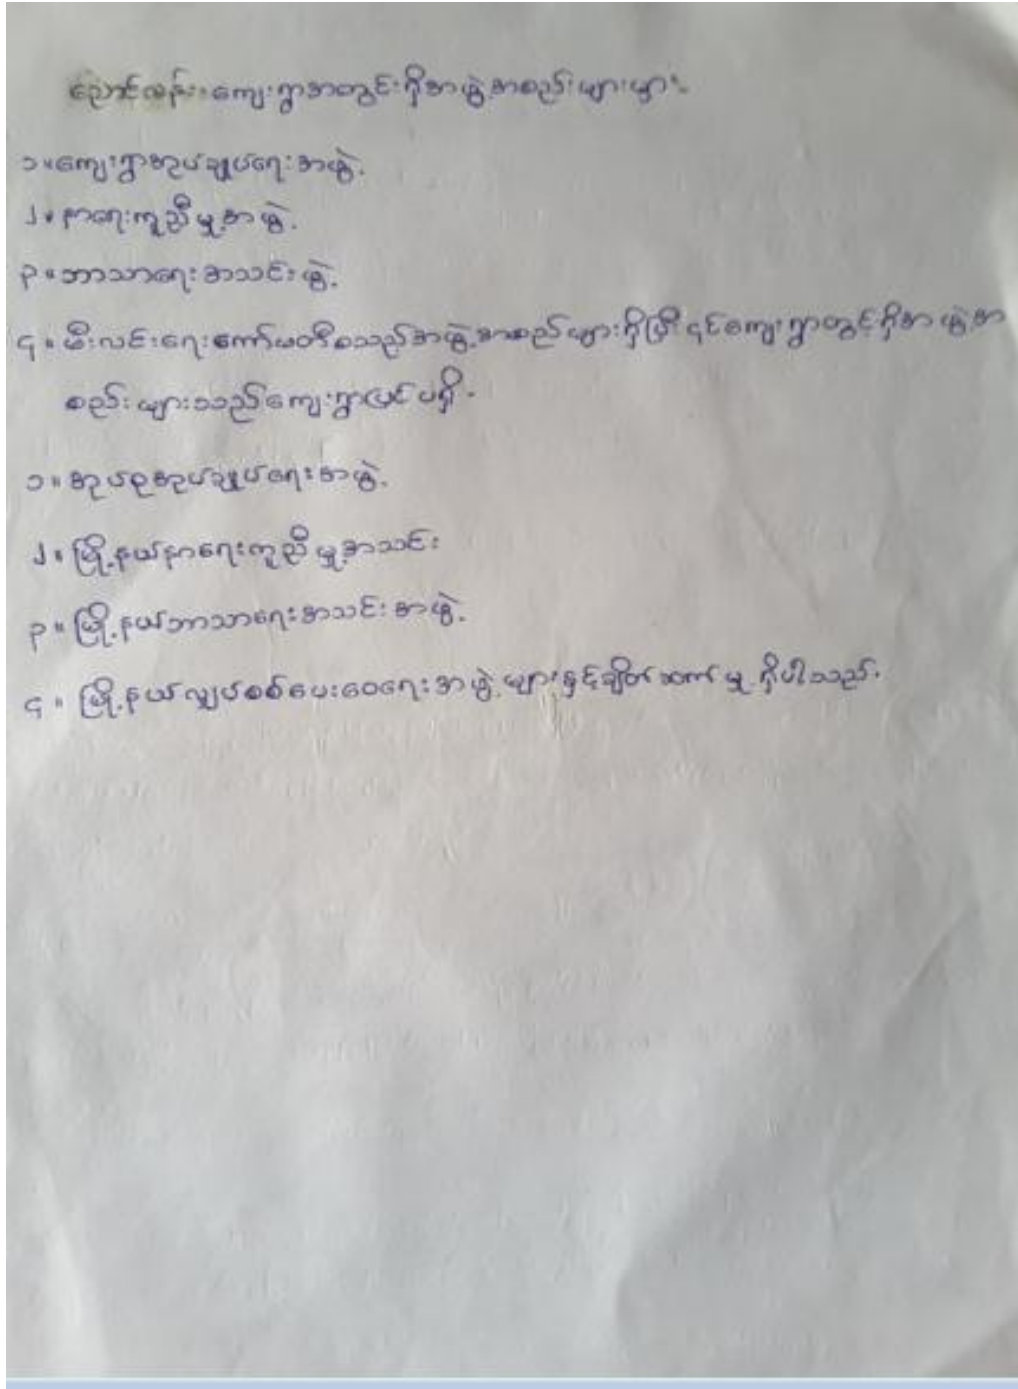 ညောင်လန်းကျေးရွာအတွင်းရှိအဖွဲ့အစည်းများမှာ-
၁။ကျေးရွာအုပ်ချုပ်ရေးအဖွဲ့
၂။နာရေးကူညီမှု့အဖွဲ့
၃။ဘာသာရေးအသင်းဖွဲ့
၄။မီးလင်းရေးကော်မတီစသည့်အဖွဲ့အစည်များရှိပြီ ၎င်ကျေးရွာတွင့်ရှိအဖွဲ့အ
စည်းများသည်ကျေးရွာပြင်ပရှိ-
၁။အုပ်စုအုပ်ချုပ်ရေးအဖွဲ့
၂။မြို့နယ်နာရေးကူညီမှု့အသင်း
၃။မြို့နယ်ဘာသာရေးအသင်းအဖွဲ့
၄။မြို့နယ်လျှပ်စစ်ပေးဝေရေးအဖွဲ့များနှင့်ချိတ်ဆက်မှု ရှိပါသည်။